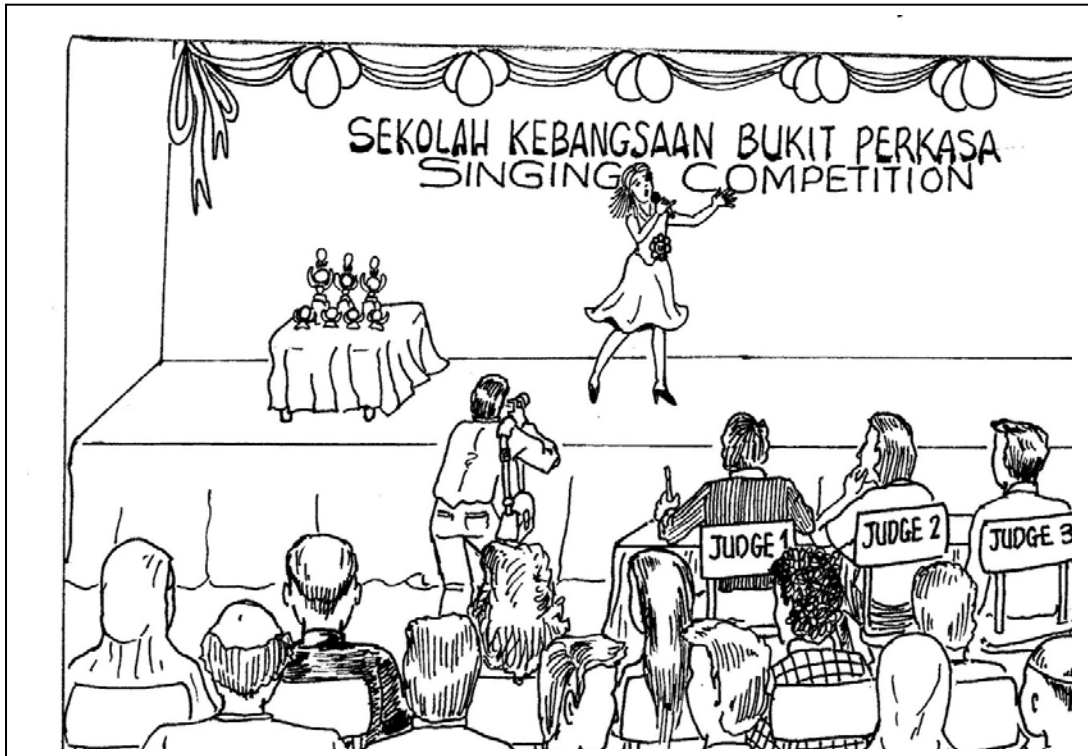 SEKOLAH KEBANGSAAN BUKIT PERKASA
SINGING COMPETITION
JUDGE 1
JUDGE 2
JUDGE 3